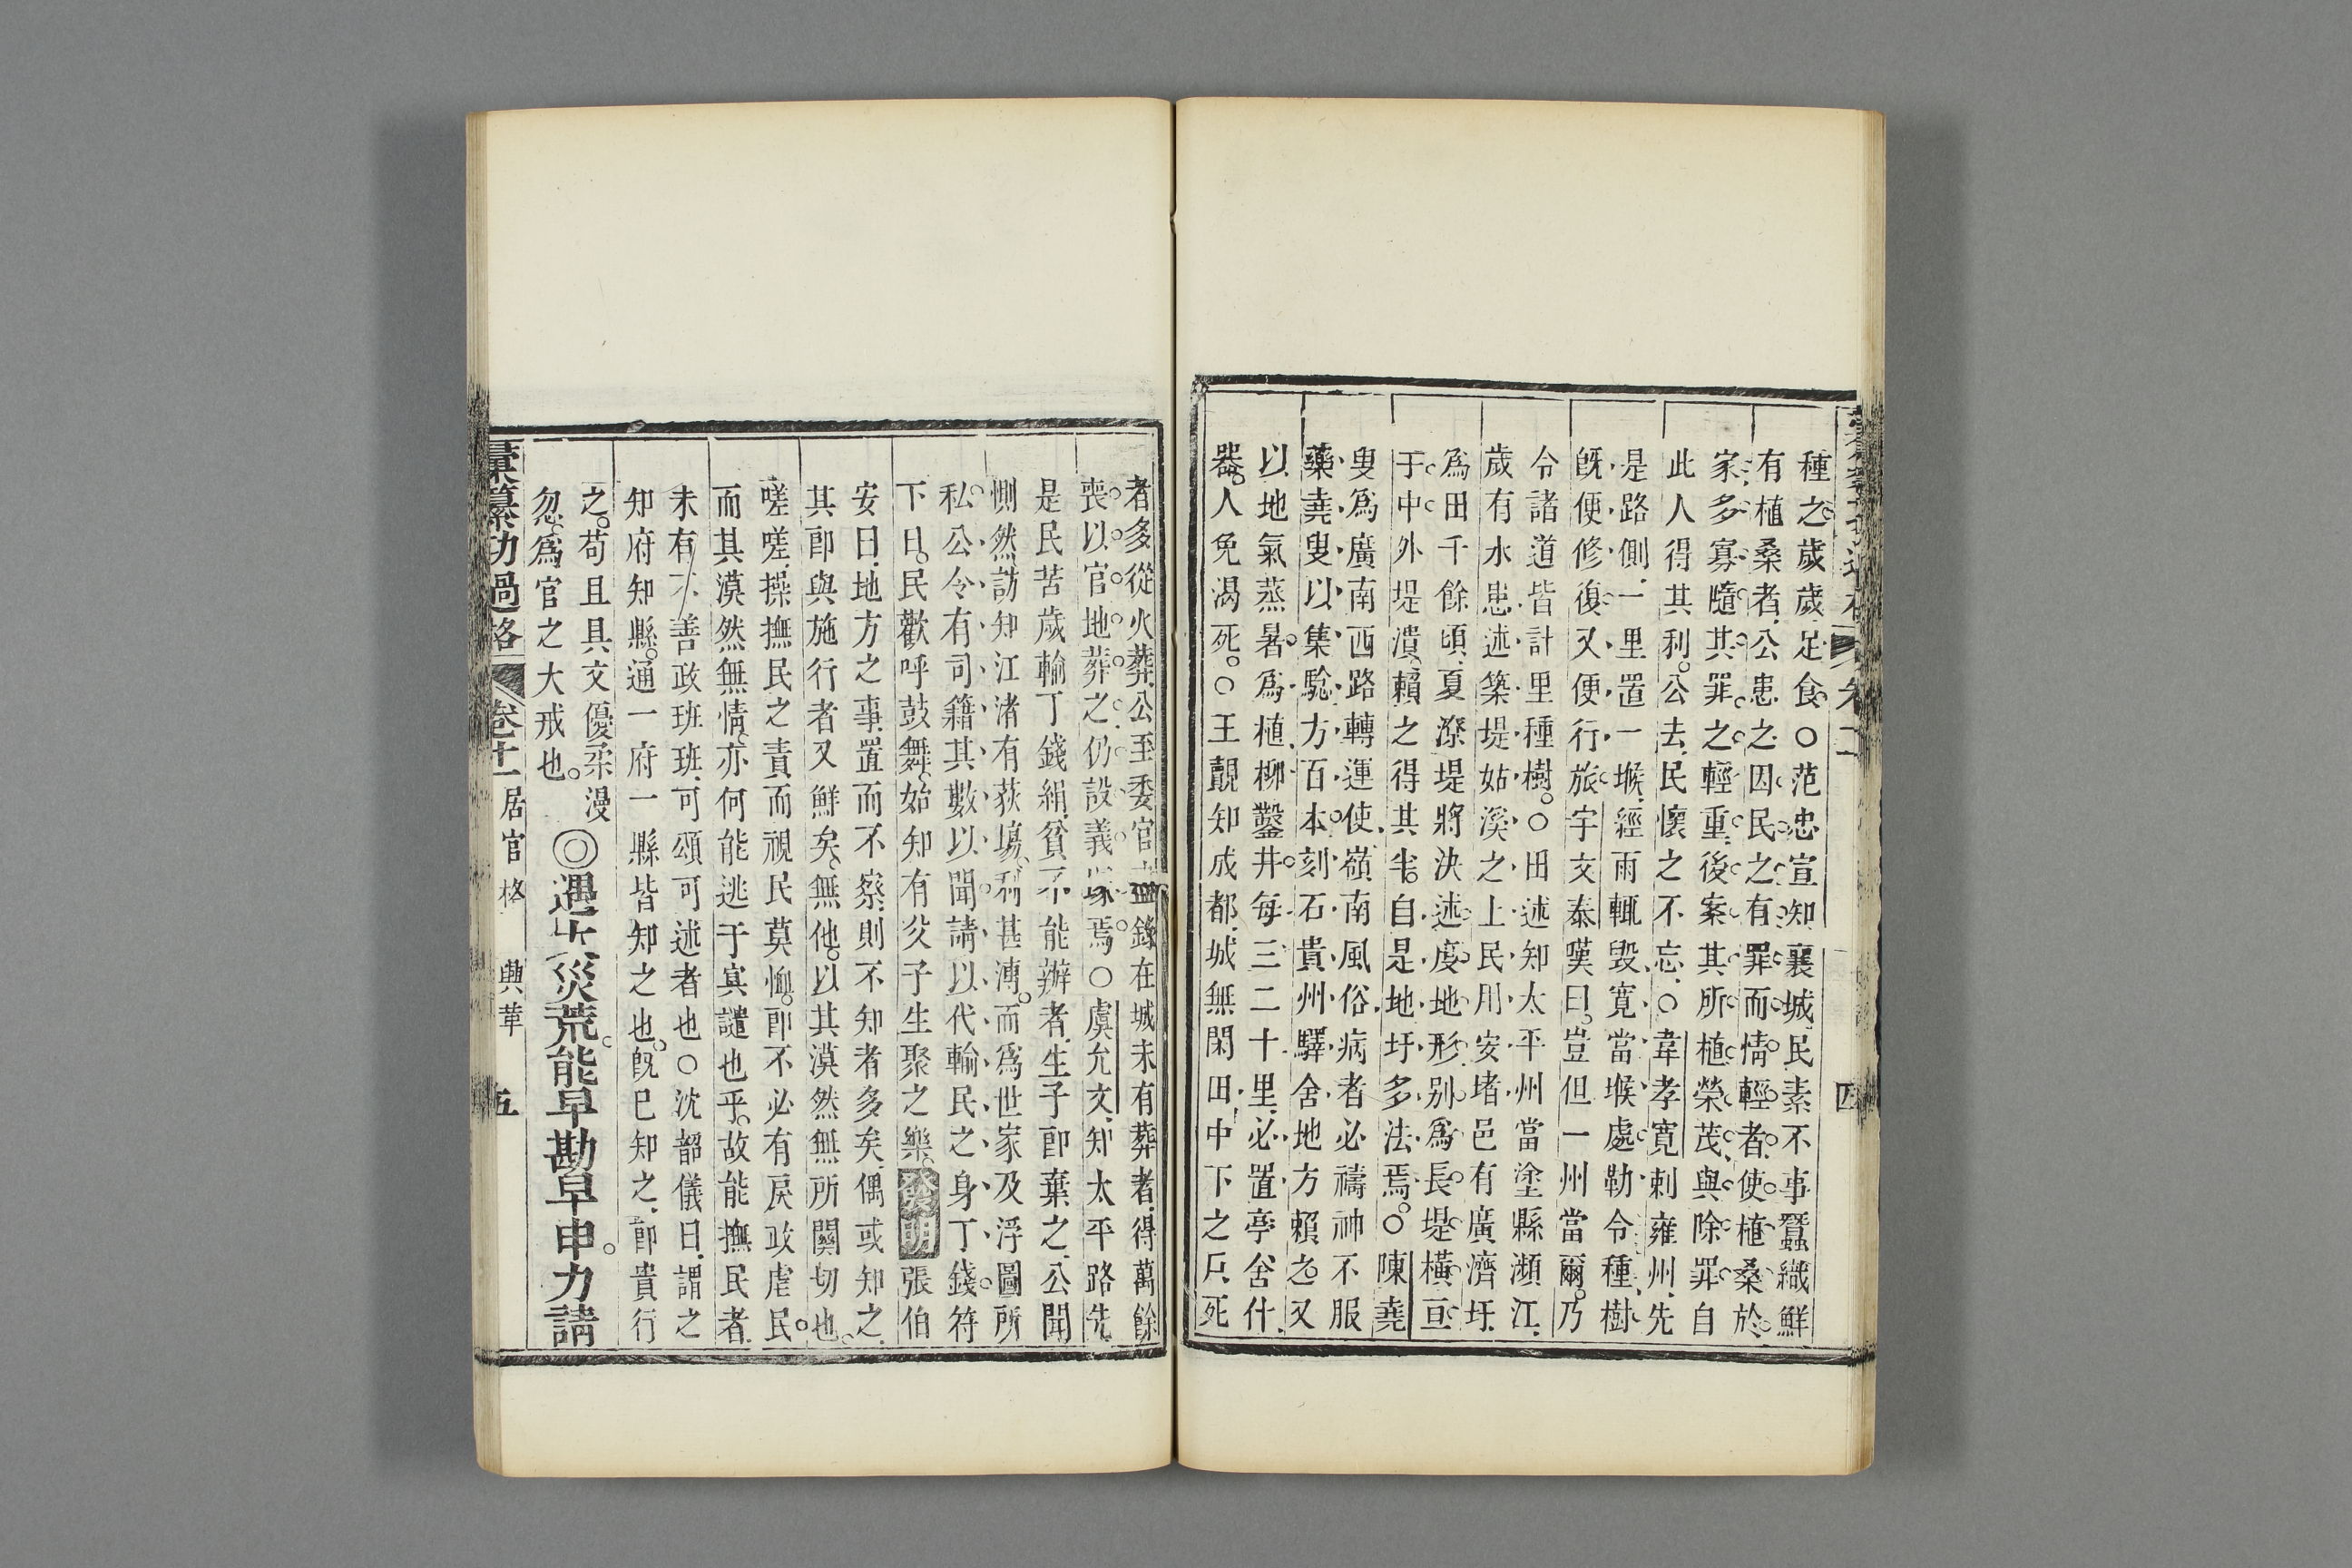 種之歲歲足食○范忠宣知襄城民素不事蠶織鮮
有植桑者公患之因民之有罪而情輕者使植桑於
家多寡隨其罪之輕重後案其所植榮茂與除罪自
此人得其利公去民懷之不忘○韋孝寬刺雍州先
是路側一里置一堠經雨輒毀寬當堠處勒令種樹
旣便修復又便行旅宇文泰嘆曰豈但一州當爾乃
令諸道皆計里種樹○田述知太平州當塗縣瀕江
歲有水患述築堤姑溪之上民用安堵邑有廣濟圩
爲田千餘頃夏潦堤將決述度地形别爲長堤橫亘
于中外堤潰賴之得其半自是地圩多法焉○陳堯
叟爲廣南西路轉運使嶺南風俗病者必禱神不服
藥堯叟以集驗方百本刻石貴州驛舍地方賴之又
以地氣蒸暑爲植柳鑿井每三二十里必置亭舍什
器人免渴死○王覿知成都城無閑田中下之戶死
者多從火葬公至委官錄在城未有葬者得萬餘
喪以官地葬之仍設義塚焉○虞允文知太平路先
是民苦歲輸丁錢絹貧不能辦者生子卽棄之公聞
惻然訪知江渚有荻場利甚溥而爲世家及浮圖所
私公令有司籍其數以聞請以代輸民之身丁錢符
下日民歡呼鼓舞始知有父子生聚之樂發明張伯
安曰地方之事置而不察則不知者多矣偶或知之
其卽與施行者又鮮矣無他以其漠然無所關切也
嗟嗟操撫民之責而視民莫恤卽不必有戾政虐民
而其漠然無情亦何能逃于寘譴也乎故能撫民者
未有不善政班班可頌可述者也○沈韶儀曰謂之
知府知縣通一府一縣皆知之也旣已知之卽貴行
之苟且具文優柔漫
忽爲官之大戒也◎遇大災荒能早勘早申力請
彙纂功過格 卷十一 居官格 興革 五